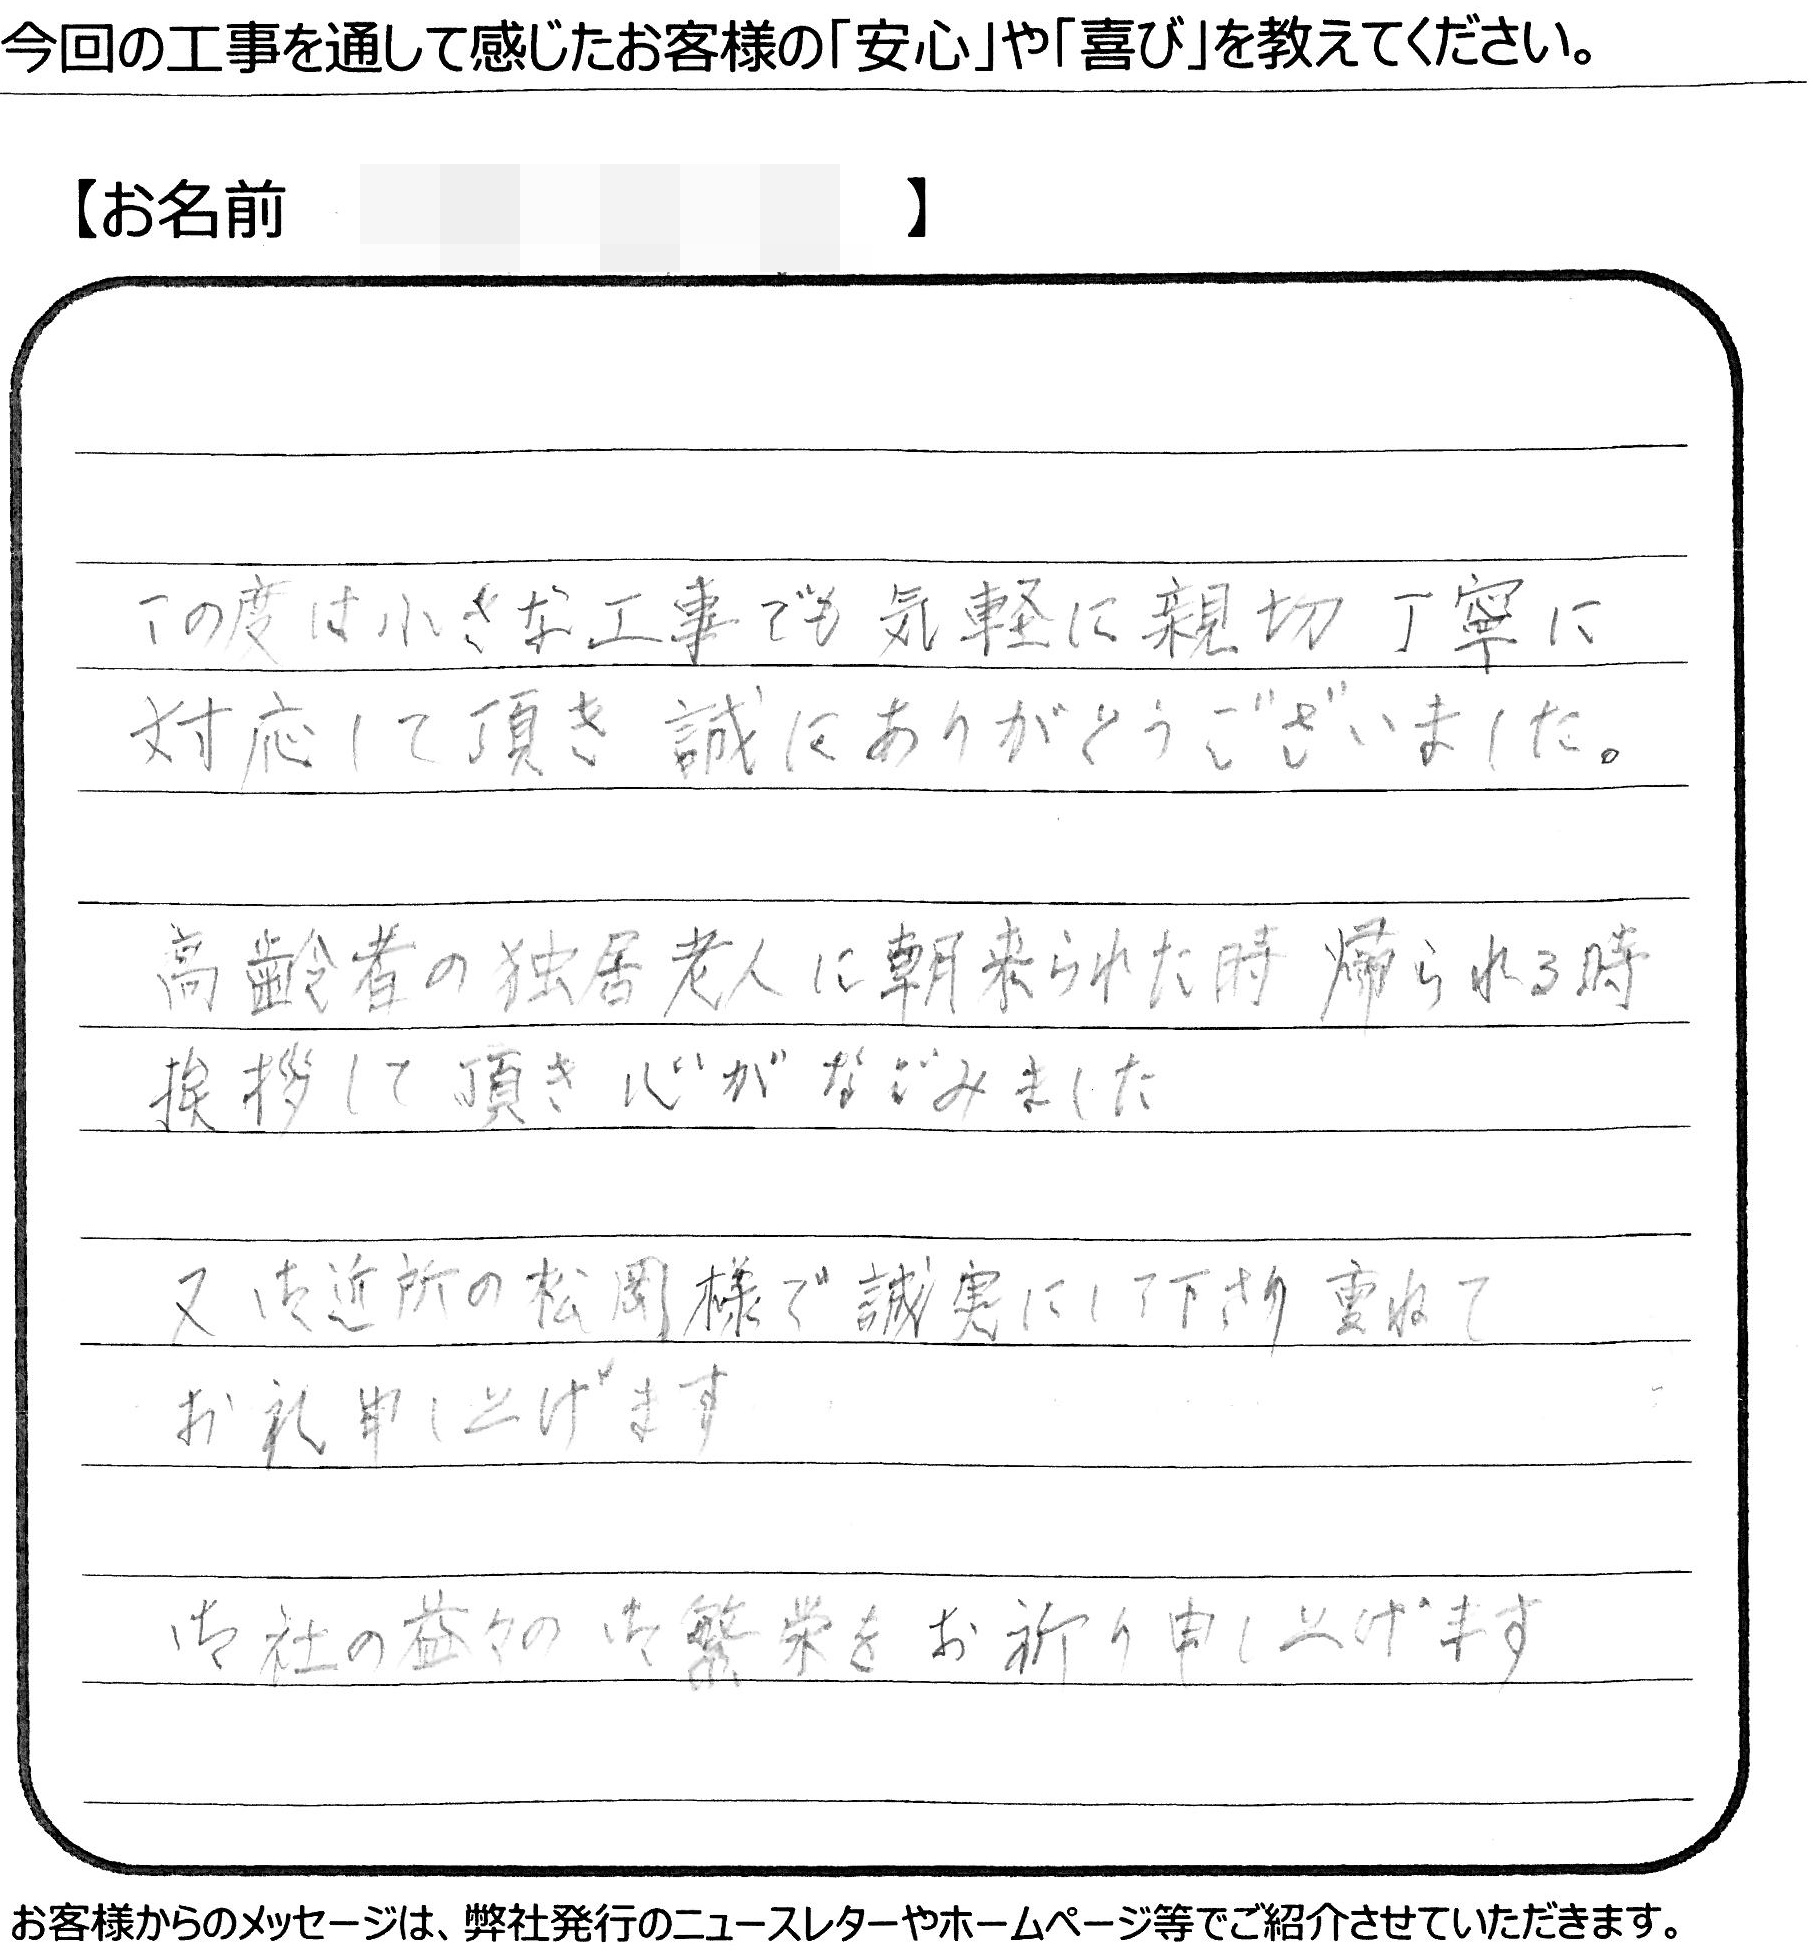 今回の工事を通して感じたお客様の「安心」や「喜び」を教えてください。
【お名前 】
この度は小さな工事でも気軽に親切丁寧に
対応して頂き 誠にありがとうございました。
高齢者の独居老人に朝来られた時 帰られる時
挨拶して頂き心がなごみました
又御近所の松岡様で誠実にして下さり 重ねて
お礼申し上げます
御社の益々の御繁栄をお祈り申し上げます
お客様からのメッセージは、弊社発行のニュースレターやホームページ等でご紹介させていただきます。